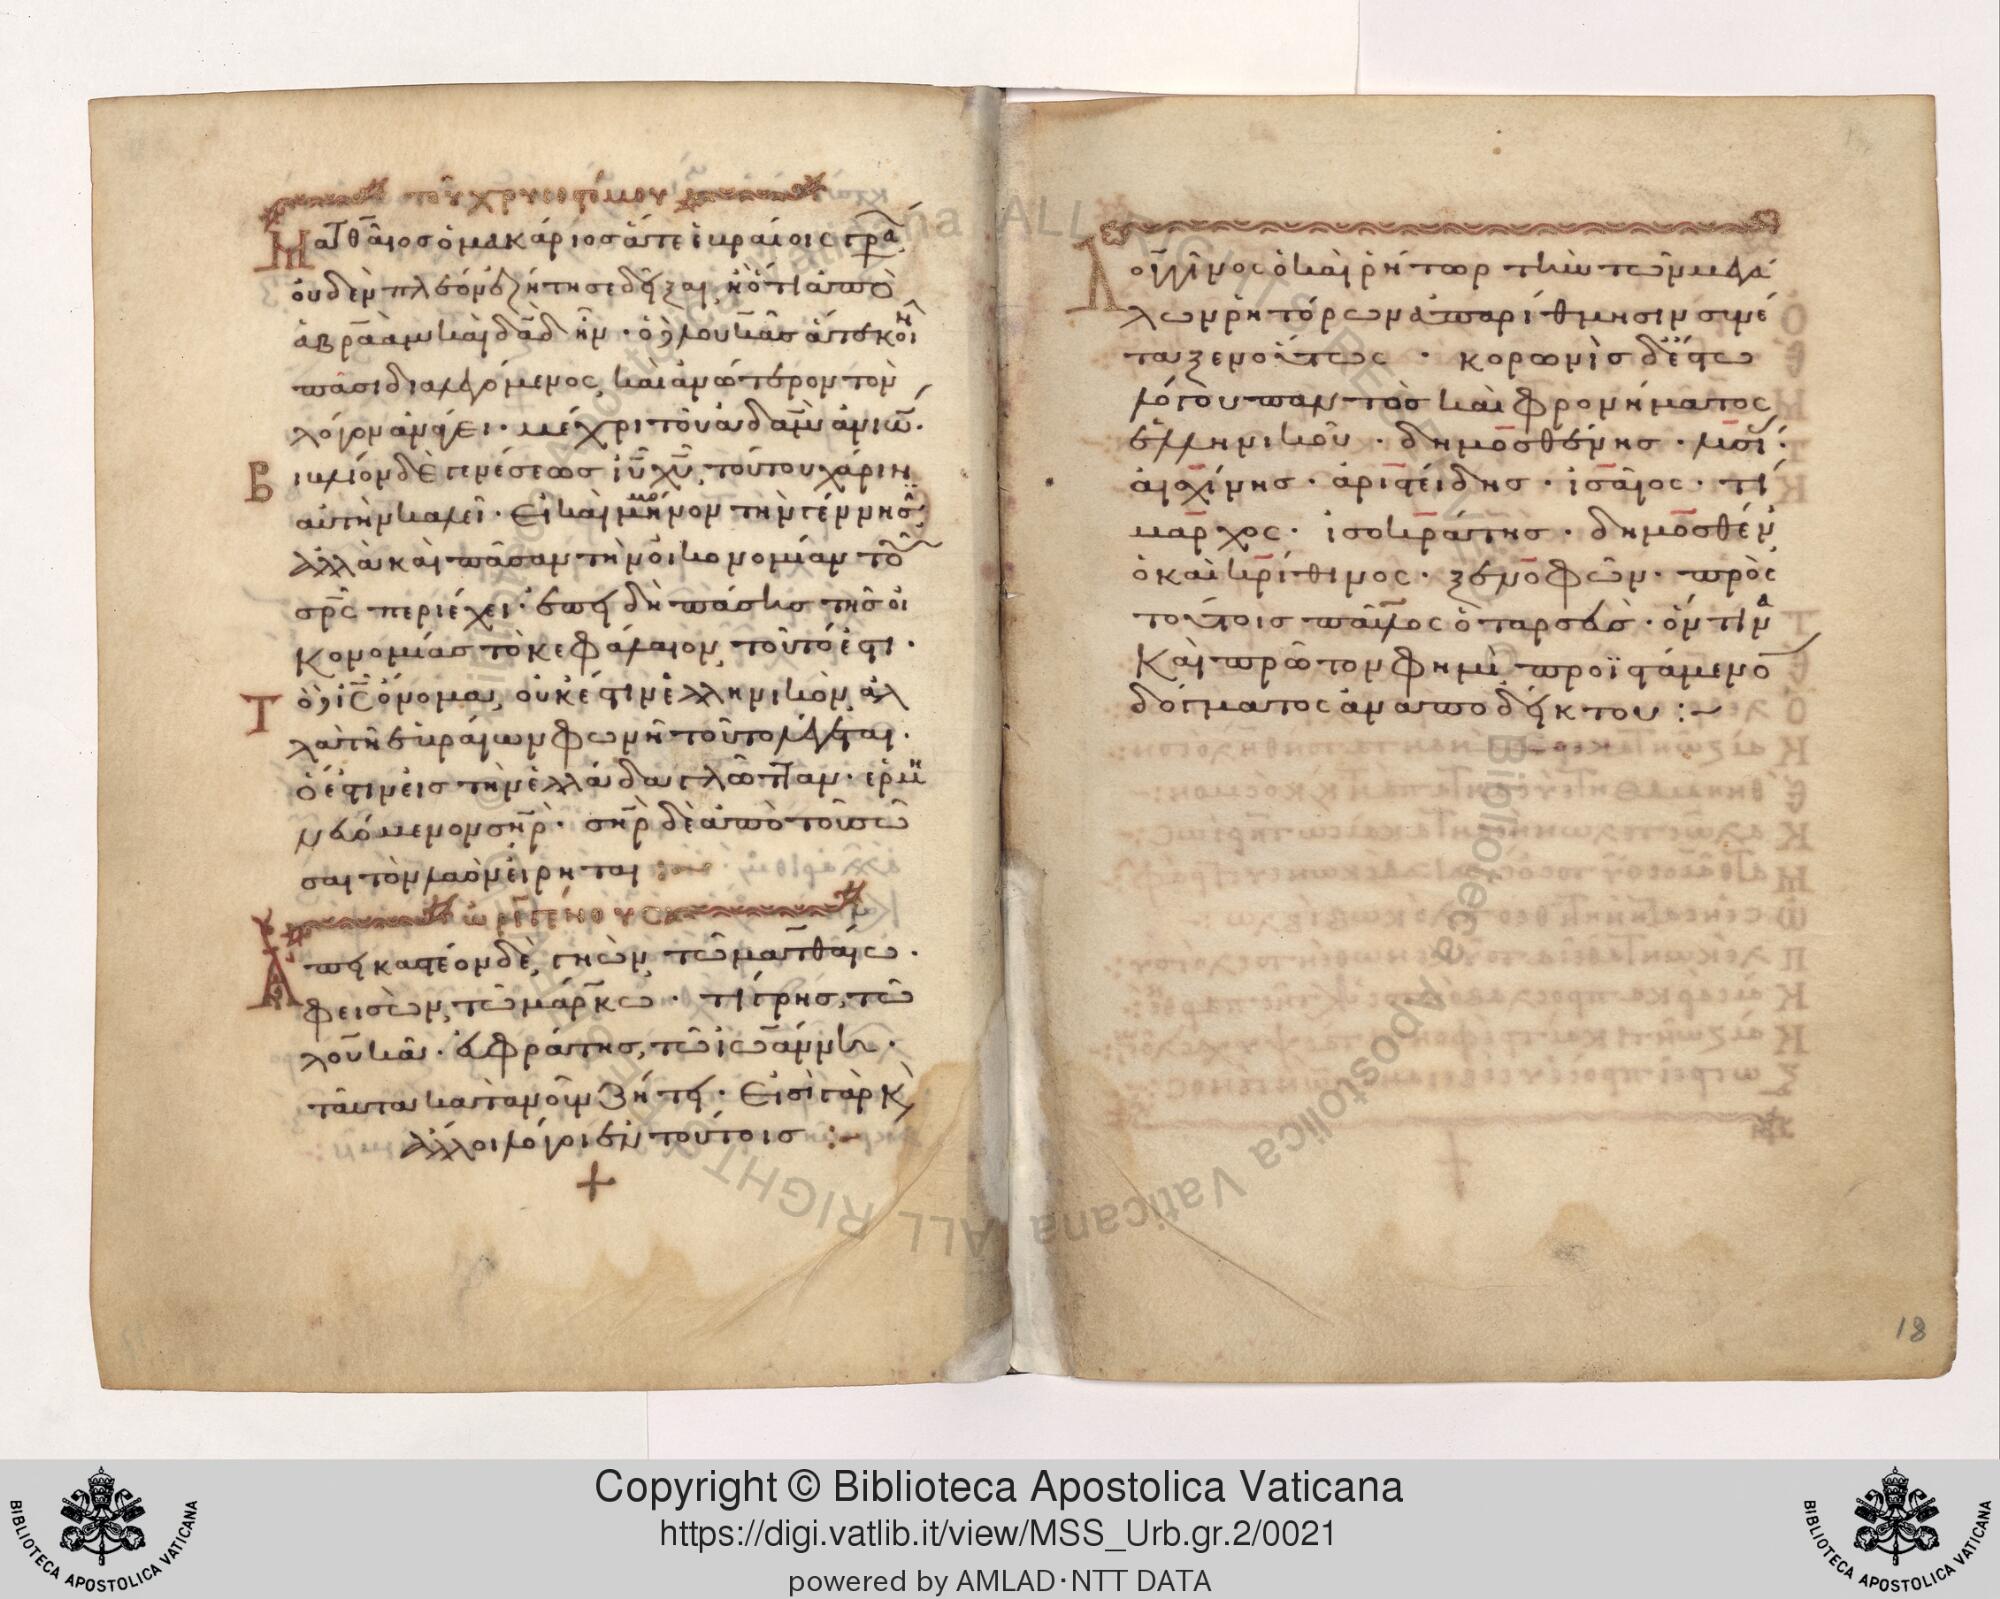 τοῦ χρυσοστόμου
Ματθαῖος ὁ μακάριος ἅτε ἑβραίοις γρά
οὐδὲν πλέον ἐζήτησε δεῖξαι, ἢ ὅτι ἀπὸ
ἀβραὰμ καὶ δαδ ἦν · ὁ λουκᾶς ἅτε κοινῆ
πᾶσι διαλεγόμενος, καὶ ἀνώτερον τὸν
λόγον ἀνάγει · μέχρι τοῦ ἀδὰμ ἀνιών ·
Βιβλίον δὲ γενέσεως ιυ χυ, τούτου χάριν
αὐτὴν καλεῖ · Εἰ καὶ μὴ μόνον τὴν γέννησιν
ἀλλὰ καὶ πᾶσαν τὴν οἰκονομίαν τοῦ
σρς περιέχει · ἐπεὶ δὴ πάσης τῆς οἰ
κονομίας τὸ κεφάλαιον, τοῦτό ἐστι ·
Τὸ ις ὄνομα, οὐκ ἔστιν ἑλληνικὸν, ἀλ
λὰ τῇ ἑβραίων φωνῇ τοῦτο λέγεται ·
ὅ ἐστιν εἰς τὴν ἑλλάδα γλῶτταν · ἑρμη
νευόμενον σηρ · σηρ δὲ ἀπὸ τοῦ σῶ
σαι τὸν λαὸν εἴρηται
ὠριγένους
Ἀπεικαστέον δὲ, γηὼν, τῶ ματθαίω ·
φεισὼν, τῶ μάρκω · τίγρης, τῶ
λουκᾶ · εὐφράτης, τῶ ἰωάννη ·
ταῦτα κατὰ νοῦν ζήτει · Εἰσὶ γὰρ κ
ἄλλοι λόγοι ἐν τούτοις :~
+
Λογγῖνος ὁ καὶ ῥήτωρ τὴν τῶν μεγά
λων ῥητόρων ἀπαρίθμησιν συνέ
ταξεν οὕτως · κορωνὶς δ' ἔστω
λόγου παντὸς καὶ φρονήματος
ἑλληνικοῦ · δημοσθένης · λυσί ·
αἰσχίνης · ἀριστείδης · ἰσαῖος · τί
μαρχος · ἰσοκράτης · δημοσθέν
ὁ καὶ κρίθινος · ξενοφῶν · πρὸς
τούτοις παῦλος ὁ ταρσεὺς · ὅντινα
καὶ πρῶτον φημὶ προϊστάμενον
δόγματος ἀναποδείκτου :~
18
Copyright © Biblioteca Apostolica Vaticana
https://digi.vatlib.it/view/MSS_Urb.gr.2/0021
powered by AMLAD·NTT DATA
BIBLIOTECA APOSTOLICA VATICANA
BIBLIOTECA APOSTOLICA VATICANA